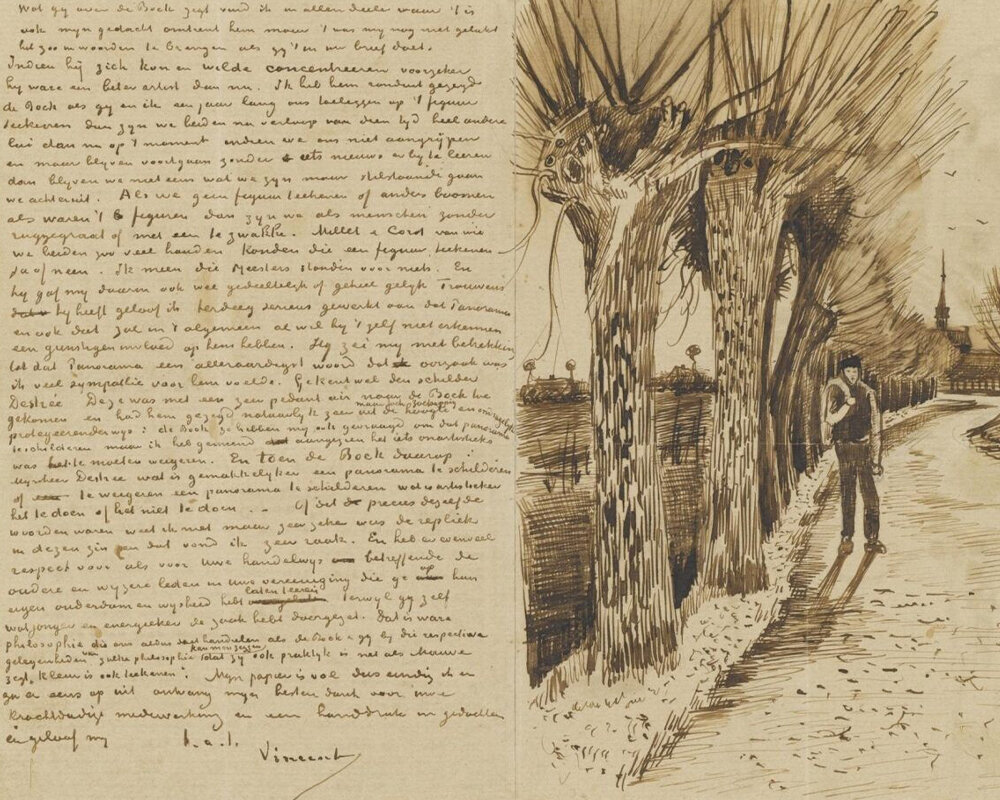 Wat gy over de Bock zegt vind ik in allen deele waar 't is
ook myn gedacht omtrent hem maar 't was my nog niet gelukt
het zoo in woorden te brengen als gy 't in uw brief doet.
Indien hij zich kon en wilde concentreeren voorzeker
hy ware een beter artist dan nu. Ik heb hem ronduit gezegd
de Bock als gy en ik een jaar lang ons toeleggen op 't figuur
teekenen dan zyn we beiden na verloop van dien tyd heel andere
lui dan nu op 't moment indien we ons niet aangrijpen
en maar blyven voortgaan zonder iets nieuws er by te leeren
dan blyven we niet eens wat we zyn maar stilstaande gaan
we achteruit. Als we geen figuur teekenen of anders boomen
als waren 't figuren dan zyn we als menschen zonder
ruggegraat of met een te zwakke. Millet & Corot van wie
we beiden zoo veel houden konden die een figuur teekenen
Ja of neen. Ik meen die Meesters stonden voor niets. En
hy gaf my daarin ook wel gedeeltelijk of geheel gelyk Trouwens
hy heeft geloof ik terdeeg serieus gewerkt aan dat Panorama
en ook dat zal in 't algemeen al wil hy 't zelf niet erkennen
een gunstigen invloed op hem hebben. Hy zei my met betrekking
tot dat Panorama een alleraardigst woord dat oorzaak was
ik veel sympathie voor hem voelde. Ge kent wel den schilder
Destrée Deze was met een zeer pedant air naar de Bock toe
gekomen en had hem gezegd natuurlyk zeer uit de hoogte en
protegeerenderwys: de Bock ze hebben my ook gevraagd om dat panorama
te schilderen maar ik heb gemeend aangezien het iets onartistieks
was het te moeten weigeren. En toen de Bock daarop:
Mynheer Destrée wat is gemakkelyker een panorama te schilderen
of te weigeren een panorama te schilderen wat is artistieker
het te doen of het niet te doen. - Of dit precies dezelfde
woorden waren weet ik niet maar zeer zeker was de repliek
in dezen zin en dat vond ik zeer raak. En heb er evenveel
respect voor als voor uwe handelwys betreffende de
oudere en wyzere leden in uwe vereeniging die ge op hun
laten teeren
eigen ouderdom en wysheid hebt terwyl gy zelf
wat jonger en energieker de zaak hebt doorgezet. Dat is ware
philosophie die ons aldus doet handelen als de Bock & gy by die respectieve
kan men zeggen
gelegenheden van zulke philosophie dat zy ook praktyk is net als Mauve
zegt, kleur is ook teekenen. Myn papier is vol dus eindig ik en
ga er eens op uit ontvang myn besten dank voor uwe
krachtdadige medewerking en een handdruk in gedachten
en geloof my
t. à t.
Vincent